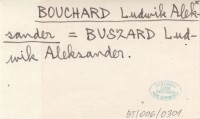 BOUCHARD Ludwik Alek-
sander = BUSZARD Lud-
wik Aleksander.
BT/006/0301